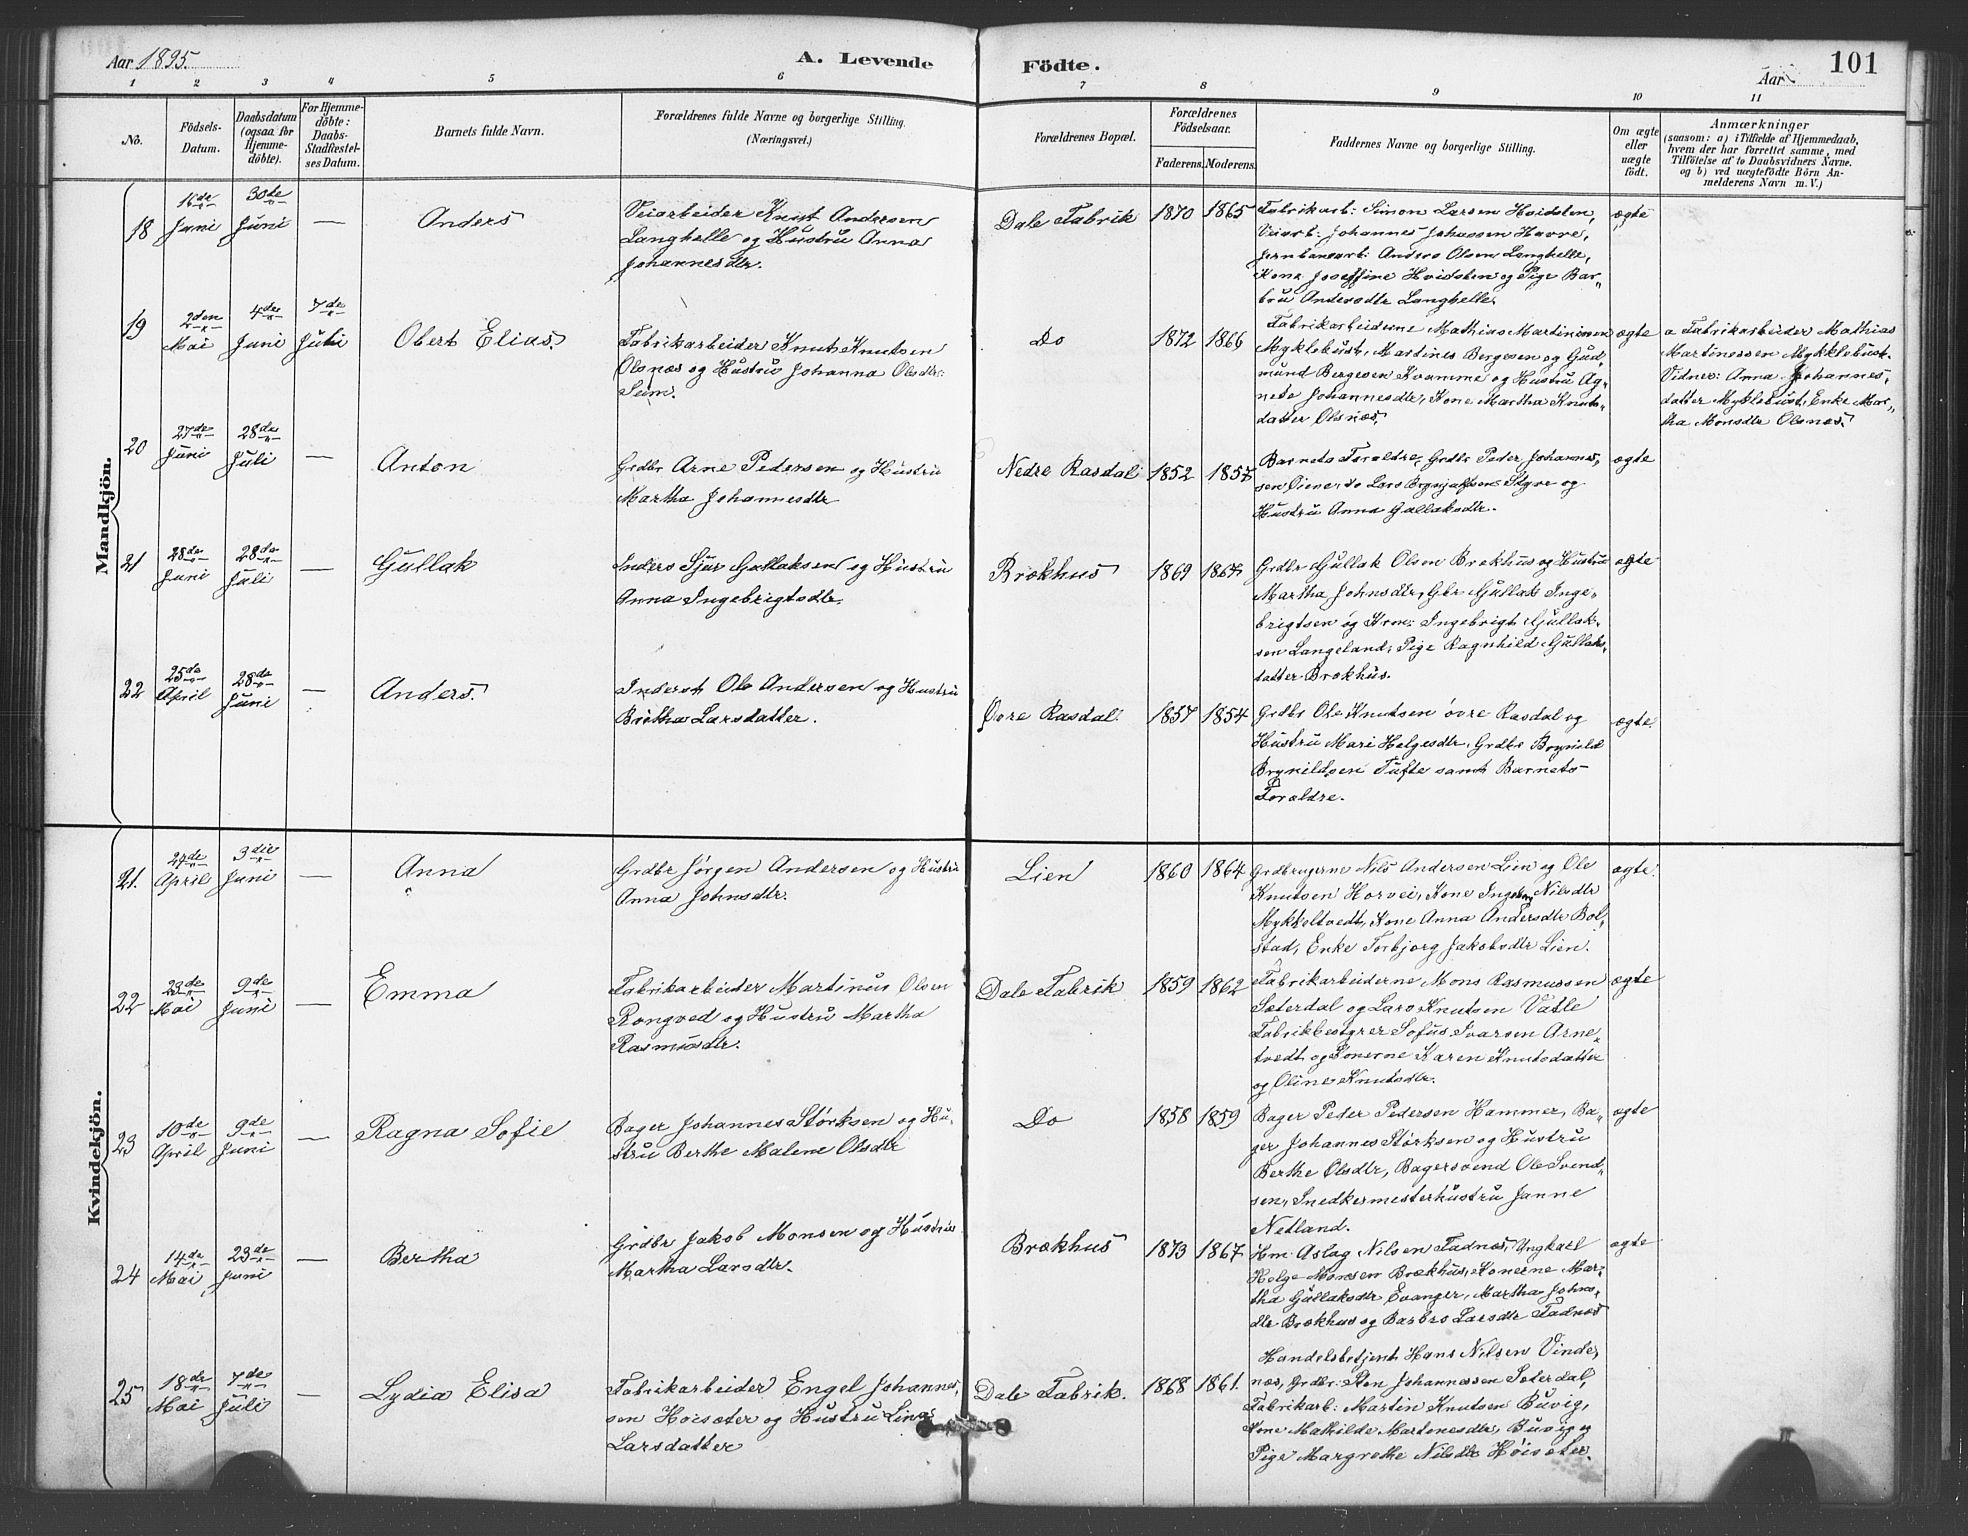 Aar 1895.
A. Levende
Födte.
Aar
101
1 2 3 4 5 6 7 8 9 10 11
No.
Födsels-
Datum.
Daabsdatum
(ogsaa for
Hjemme-
döbte).
For Hjemme-
döbte:
Daabs-
Stadfæstel-
ses Datum.
Barnets fulde Navn.
Forældrenes fulde Navne og borgerlige Stilling.
(Næringsvei.)
Forældrenes Bopæl.
Forældrenes
Födselsaar.
Faderens. Moderens.
Faddernes Navne og borgerlige Stilling.
Om ægte
eller
uægte
födt.
Anmærkninger
(saasom: a) i Tilfælde af Hjemmedaab,
hvem der har forrettet samme, med
Tilföielse af to Daabsvidners Navne.
og b) ved uægtefödte Börn An-
melderens Navn m. V.)
Mandkjön.
18
16de
Juni
30de
Juni
—
Anders
Veiarbeider Knut Andersen
Langhelle og Hustru Anna
Johannesdtr.
Dale Fabrik
1870
1865
Fabrikarb: Simon Larsen Hvidsten,
Veiarb: Johannes Johassen Havre,
Jernbanearb: Anders Olsen Langhelle,
Kone Joseffine Hvidsten og Pige Bar-
bru Andersdtr Langhelle.
ægte
19
2den
Mai
4de
Juni
7de
Juli
Obert Elias.
Fabrikarbeider Knut Knutsen
Olsnæs og Hustru Johanna Olsdtr:
Seim.
Do
1872
1866
Fabrikarbeiderne Mathias Martinssen
Myklebust, Martines Bergesen og Gud-
mund Bergesen Kvamme og Hustru Ag-
nete Johannesdtr, Kone Martha Knuts-
datter Olsnæs.
ægte
a Fabrikarbeider Mathias
Martinessen Mykklebust.
Vidner: Anna Johannes-
datter Myklebust, Enke Mar-
tha Monsdtr Olsnæs.
20
27de
Juni
28de
Juli
—
Anton
Grdbr Arne Pedersen og Hustru
Martha Johannesdtr
Nedre Rasdal
1852
1857
Barnets Forældre, Grdbr Peder Johannes-
sen Øiene, do Lars Brynjulfsen Styve og
Hustru Anna Gullaksdtr.
ægte
21
28de
Juni
28de
Juli
—
Gullak
Inders Sjur Gullaksen og Hustru
Anna Ingebrigtsdtr.
Brækhus
1869
Grdbr Gullak Olsen Brækhus og Hustru
Martha Johnsdtr, Gbr Gullak Inge-
brigtsen og Hme: Ingebrigt Gullak-
sen Langeland, Pige Ragnhild Gullaks-
datter Brækhus.
ægte
22
25de
April
28de
Juni
—
Anders.
Inderst Ole Andersen og Hustru
Britha Larsdatter.
Øvre Rasdal.
1857
1854
Grdbr Ole Knutsen øvre Rasdal og
Hustru Mari Helgesdtr, Grdbr Brynild
Brynildsen Tufte samt Barnets
Forældre.
ægte.
Kvindekjön.
21.
April
3die
Juni
—
Anna
Grdbr Jørgen Andersen og Hustru
Anna Johnsdtr.
Lien
1860
1864
Grdbrugerne Nils Andersen Lien og Ole
Knutsen Horvei, Kone Ingeborg Nilsdtr
Mykkeltvedt, Kone Anna Andersdtr Bol-
stad, Enke Torbjorg Jakobsdtr Lien.
ægte.
22
23de
Mai
9de
Juni
—
Emma
Fabrikarbeider Martinus Olsen
Rongved og Hustru Martha
Rasmusdtr.
Dale Fabrik
1859
1862
Fabrikarbeiderne Mons Rasmussen
Sæterdal og Lars Knutsen Vatle
Fabrikbestyrer Sofus Ivarsen Arne-
tvedt og Konerne Karen Knutsdatter
og Oline Knutsdtr.
ægte
23
10de
April
9de
Juni
—
Ragna Sofie
Bager Johannes Størksen og Hu-
stru Berthe Malene Olsdtr
Do
1858
1859
Bager Peder Pedersen Hammer, Ba-
ger Johannes Størksen og Hustru
Berthe Olsdtr, Bagersvend Ole Svend-
sen, Snedkermesterhustru Janne
Netland.
ægte
24
14de
Mai
23de
Juni
—
Bertha
Grdbr Jakob Monsen og Hustru
Martha Larsdtr.
Brækhus
1873
1867
Hm: Aslag Nilsen Fadnæs, Ungkarl
Helge Monsen Brækhus, Konerne Mar-
tha Gullaksdtr Evanger, Martha Johns-
dtr Brækhus og Barbro Larsdtr Fadnæs
ægte
25
18de
Mai
7de
Juli
—
Lydia Elisa
Fabrikarbeider Engel Johannes-
sen Høisæter og Hustru Lina
Larsdatter
Dale Fabrik.
1868
1861.
Handelsbetjent Hans Nilsen Vinde-
næs, Grdbr: Sten Johannessen Sæterdal,
Fabrikarb: Martin Knutsen Buvig,
Kone Mathilde Martinesdtr, Buvig og
Pige Margrethe Nilsdtr Høisæter.